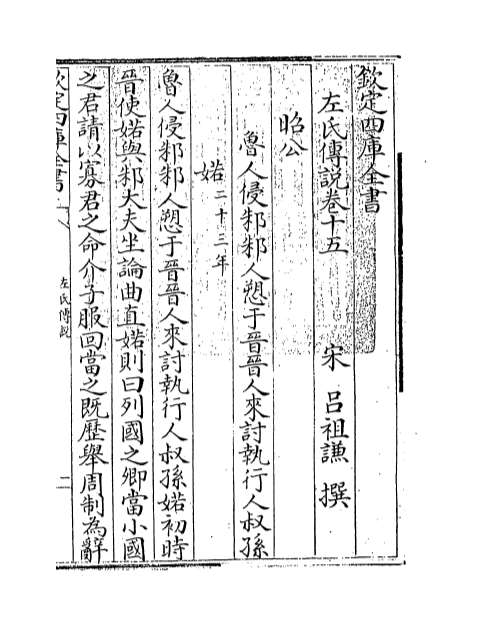 欽定四庫全書
左氏傳說卷十五
宋 呂祖謙 撰
昭公
魯人侵邾邾人愬于晉晉人來討執行人叔孫
婼二十三年
魯人侵邾邾人愬于晉晉人來討執行人叔孫婼初時
晉使婼與邾大夫坐論曲直婼則曰列國之卿當小國
之君請以寡君之命介子服回當之既歷舉周制為辭
欽定四庫全書
左氏傳說